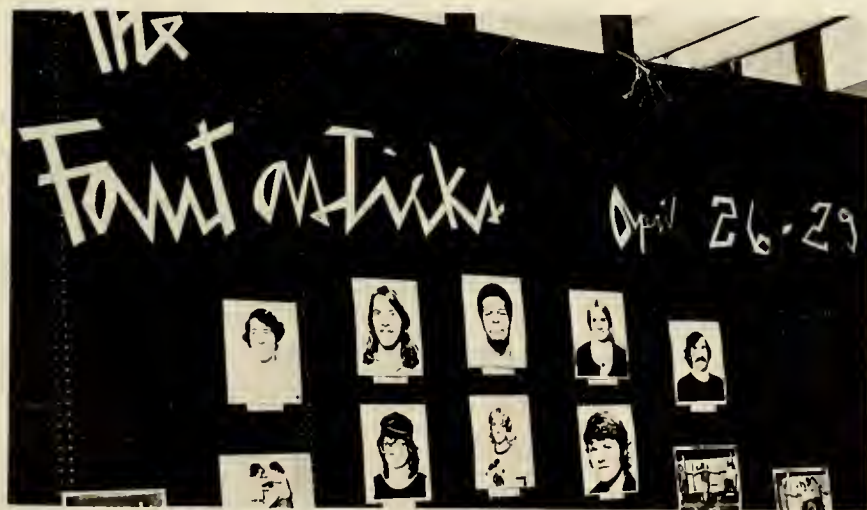 The
Fantasticks
April 26-29